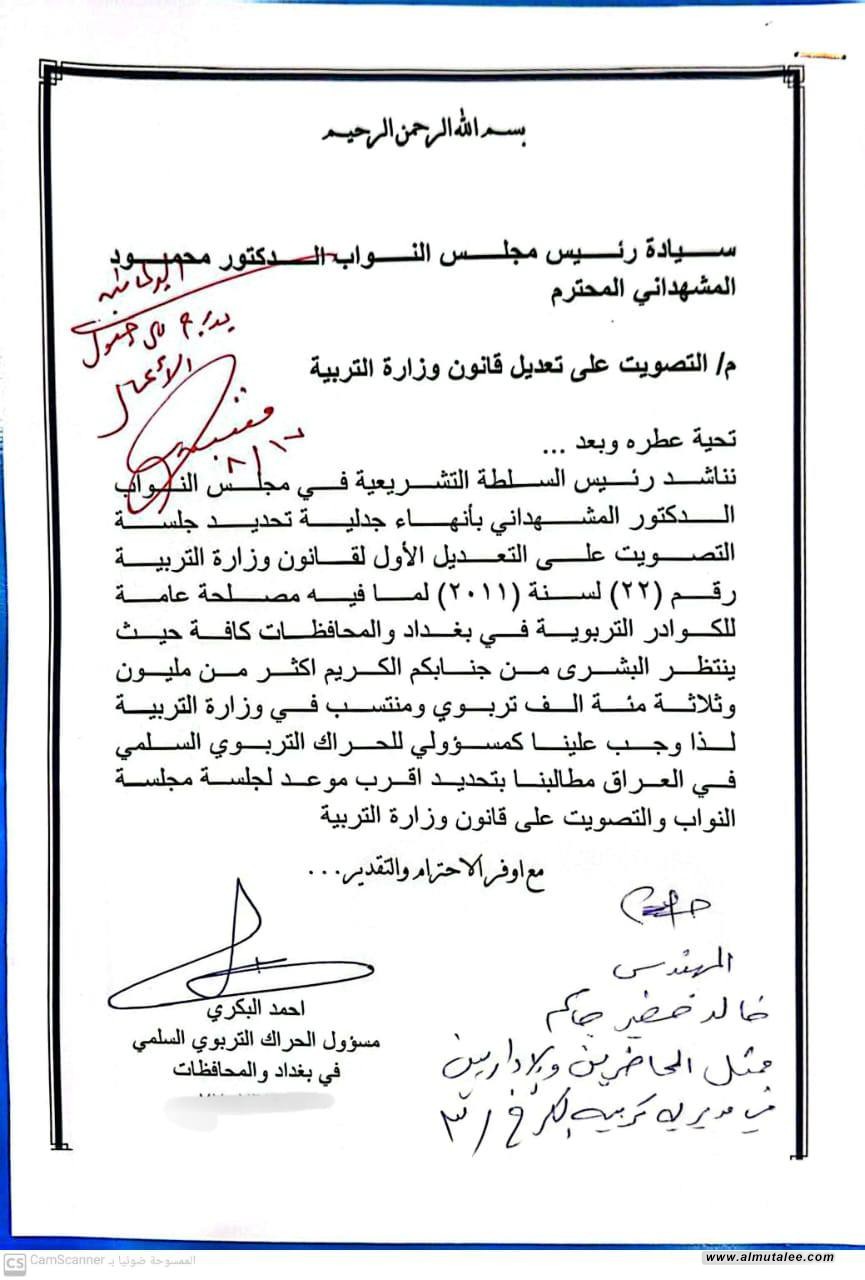 بسم الله الرحمن الرحيم
سيادة رئيس مجلس النواب الدكتور محمود
المشهداني المحترم
م/ التصويت على تعديل قانون وزارة التربية
يدرج في جدول
الأعمال
١٧/٨
تحية عطره وبعد ...
نناشد رئيس السلطة التشريعية في مجلس النواب
الدكتور المشهداني بأنهاء جدلية تحديد جلسة
التصويت على التعديل الأول لقانون وزارة التربية
رقم (٢٢) لسنة (٢٠١١) لما فيه مصلحة عامة
للكوادر التربوية في بغداد والمحافظات كافة حيث
ينتظر البشرى من جنابكم الكريم اكثر من مليون
وثلاثة مئة الف تربوي ومنتسب في وزارة التربية
لذا وجب علينا كمسؤولي للحراك التربوي السلمي
في العراق مطالبنا بتحديد اقرب موعد لجلسة مجلسة
النواب والتصويت على قانون وزارة التربية
مع اوفر الاحترام والتقدير...
المهندس
خالد خضير
ممثل المحاضرين والاداريين
في مديرية تربية الكرخ /٣
احمد البكري
مسؤول الحراك التربوي السلمي
في بغداد والمحافظات
www.almutalee.com
CS CamScanner الممسوحة ضوئيا بـ